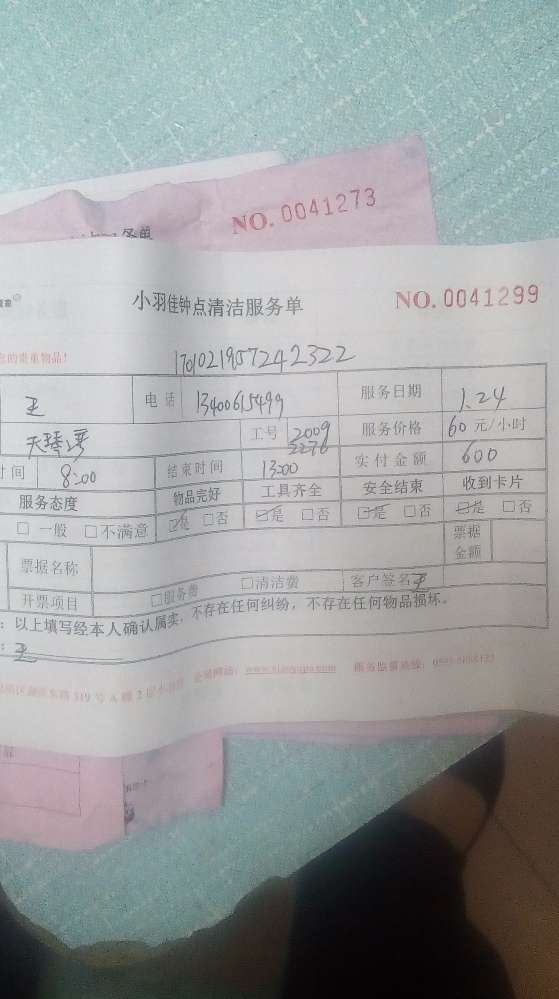 NO. 0041273
务单
小羽佳钟点清洁服务单 NO. 0041299
的贵重物品!
170102195724 2322
王 电话 13400615499 服务日期 1.24
天琴湾 工号 2009 2276 服务价格 60 元/小时
时间 8:00 结束时间 13:00 实付金额 600
服务态度 物品完好 工具齐全 安全结束 收到卡片
□一般 □不满意 ☑是 □否 ☑是 □否 ☑是 □否 ☑是 □否
票据名称 票据金额
开票项目 □服务费 □清洁费 客户签名 王
:以上填写经本人确认属实,不存在任何纠纷,不存在任何物品损坏。
:王
319 号 A 幢 2 层